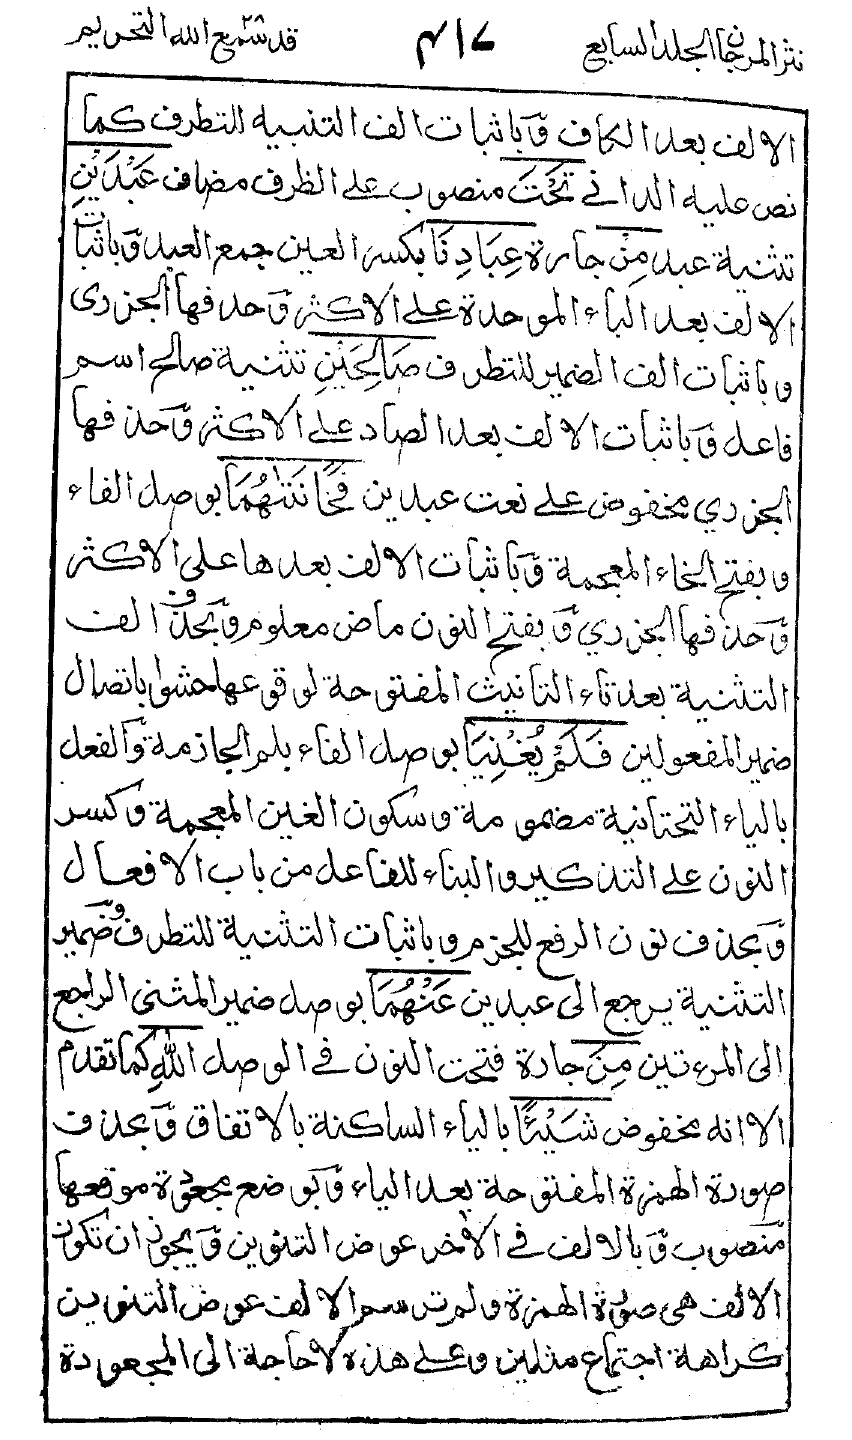 نثر المرجان الجلد السابع ٤١٧ قد سمع الله التحريم
الالف بعد الكاف وباثبات الف التثنية للتطرف كما
نص عليه الداني تَحْتَ منصوب على الظرف مضاف عَبْدَيْنِ
تثنية عبد مِنْ جارة عِبَادِنَا بكسر العين جمع العبد وباثبات
الالف بعد الباء الموحدة على الاكثر وحذفها الجزري
وباثبات الف الضمير للتطرف صَالِحَيْنِ تثنية صالح اسم
فاعل وباثبات الالف بعد الصاد على الاكثر وحذفها
الجزري مخفوض على نعت عبدين فَخَانَتٰهُمَا بوصل الفاء
وبفتح الخاء المعجمة وباثبات الالف بعدها على الاكثر
وحذفها الجزري وبفتح النون ماض معلوم وبحذف الف
التثنية بعد تاء التانيث المفتوحة لوقوعها حشوا باتصال
ضمير المفعولين فَلَمْ يُغْنِيَا بوصل الفاء بلم الجازمة والفعل
بالياء التحتانية مضمومة وسكون الغين المعجمة وكسر
النون على التذكير والبناء للفاعل من باب الافعال
وبحذف نون الرفع للجزم وباثبات التثنية للتطرف وضمير
التثنية يرجع الى عبدين عَنْهُمَا بوصل ضمير المثنى الراجع
الى المرءتين مِنَ جارة فتحت النون في الوصل اللهِ كما تقدم
الا انه مخفوض شَيْئًا بالياء الساكنة بالاتفاق وبحذف
صورة الهمزة المفتوحة بعد الياء وبوضع مجعودة موقعها
منصوب وبالالف في الاخر عوض التنوين ويجوز ان تكون
الالف هي صورة الهمزة ولم ترسم الالف عوض التنوين
كراهة اجتماع مثلين وعلى هذه لاحاجة الى المجعودة